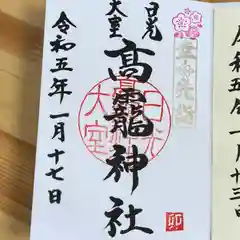 日光
大室
高龗神社
令和五年一月十七日
卯
令和五年一月十三日